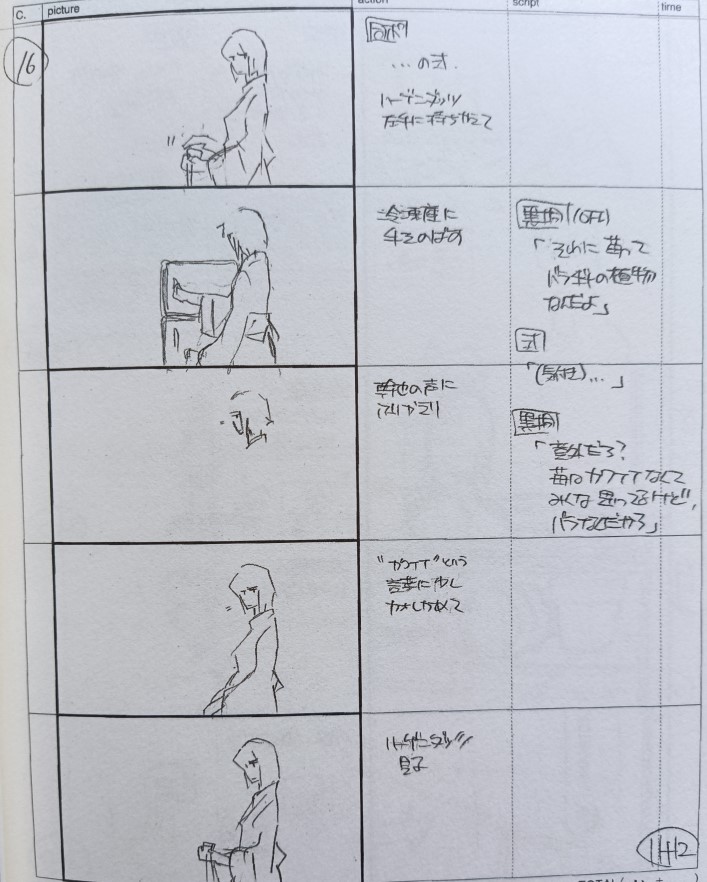 C.
picture
action
script
time
16
同ポ
…の式.
ハーゲンダッツ
左手に持ちかえて
冷凍庫に
手をのばす
黒桐(OFF)
「それに苺って
バラ科の植物
なんだよ」
式
「(気付き)…」
幹也の声に
ふりかえり
黒桐
「意外だろ?
苺はカワイイなんて
みんな思ってるけど,
バラなんだから」
"カワイイ"という
言葉に少し
カオしかめて
ハーゲンダッツ
見る
11+12